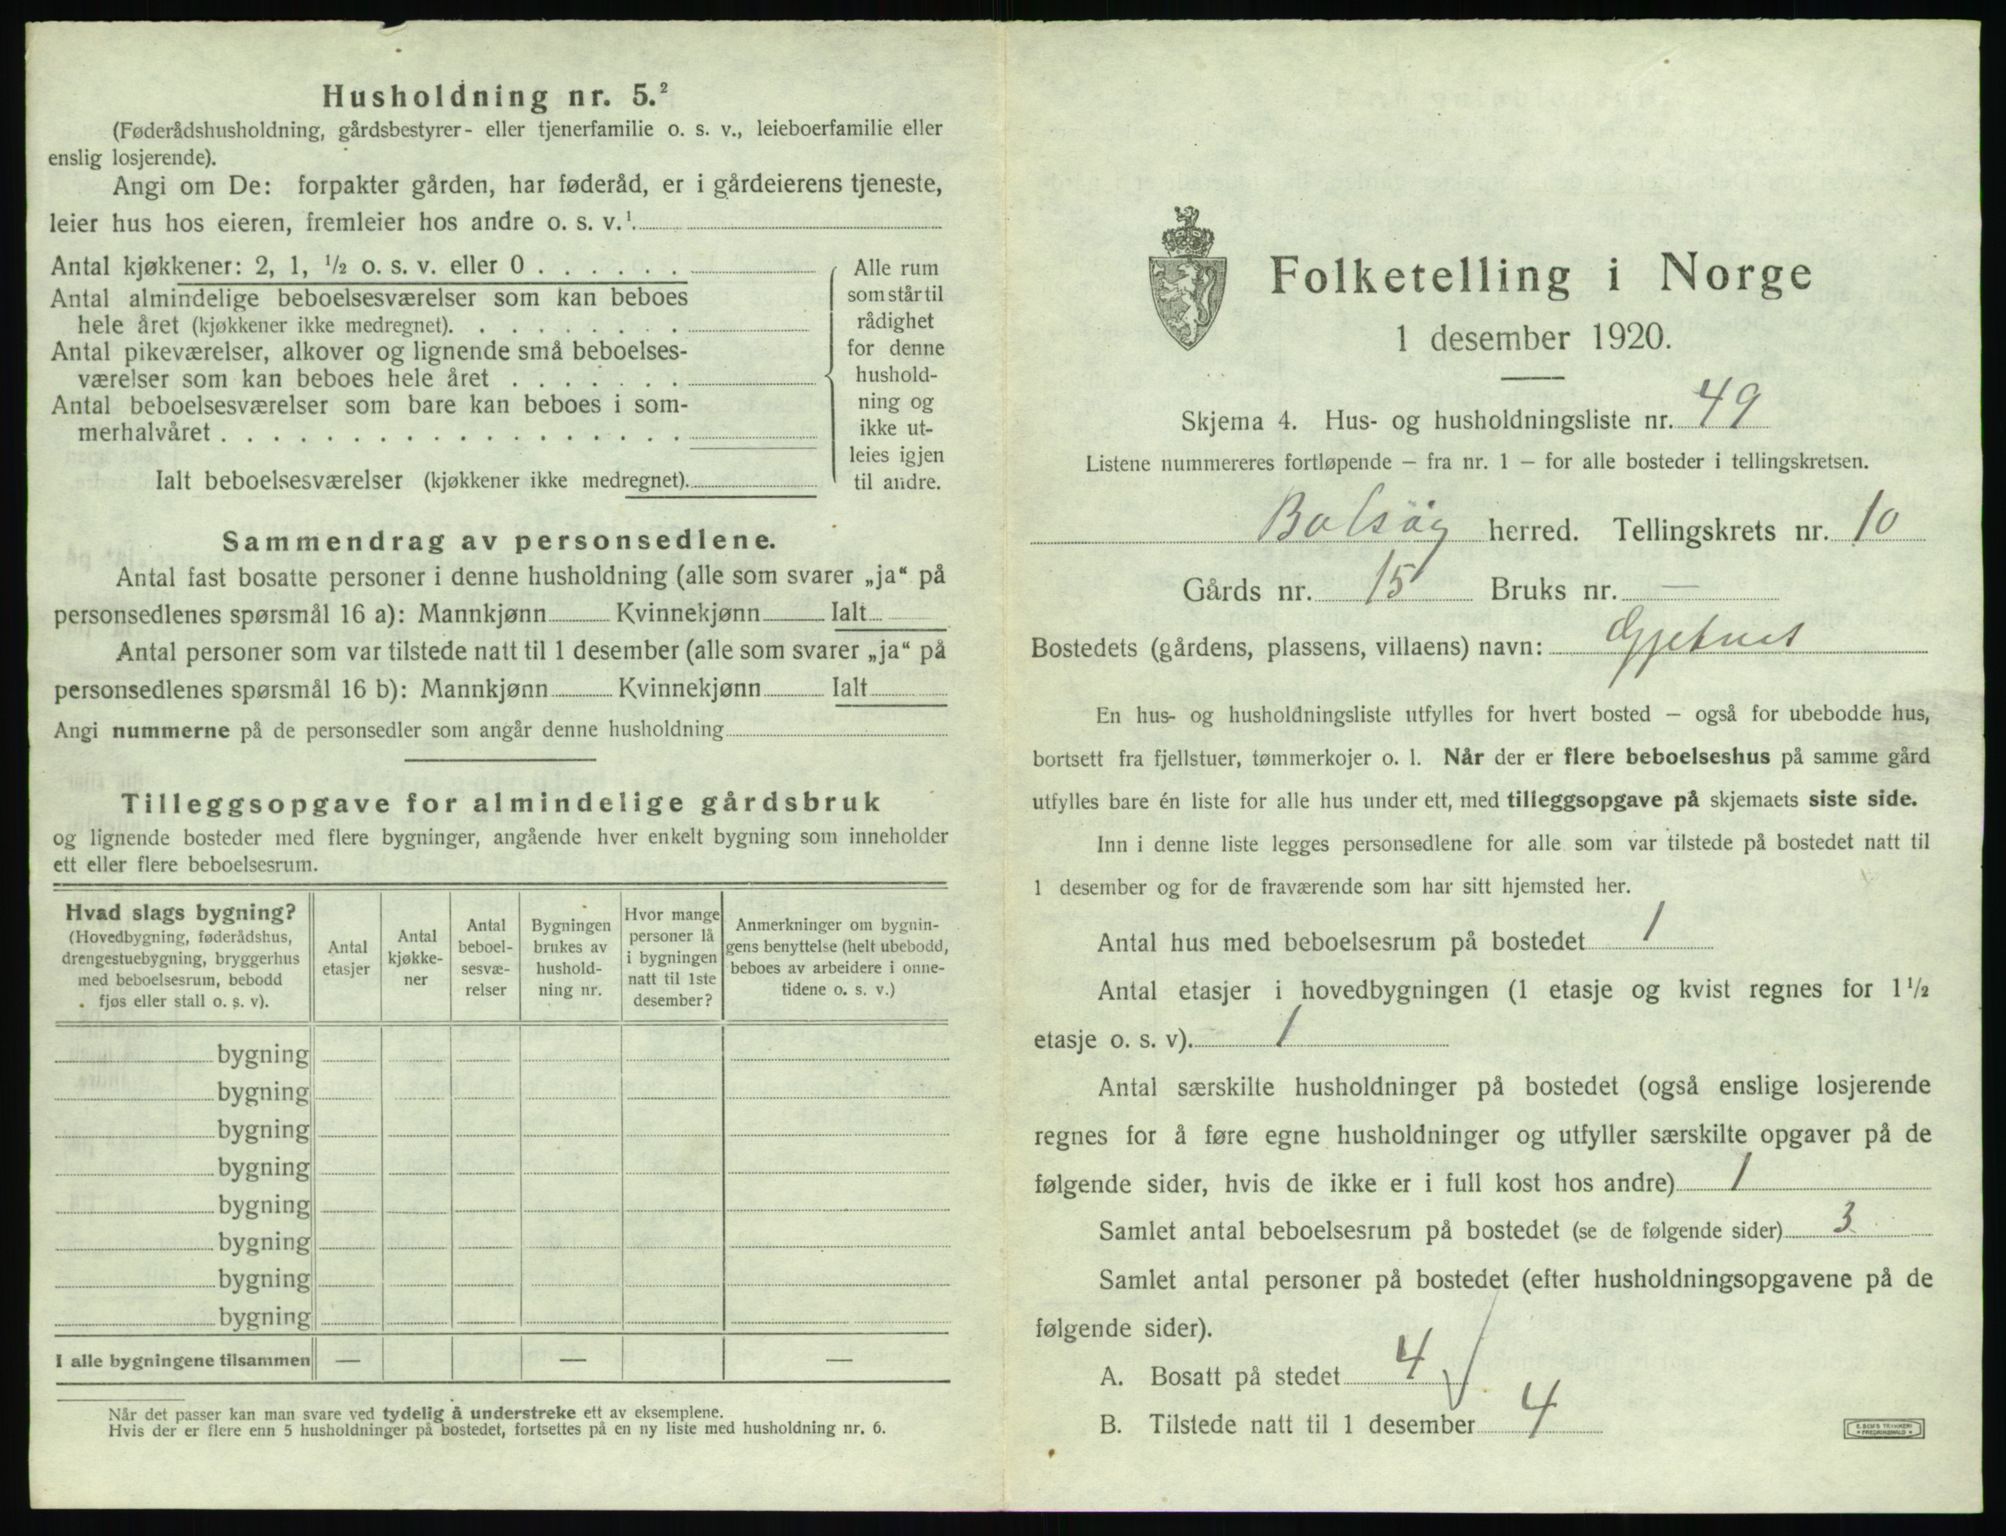 Husholdning nr. 5.²
(Føderådshusholdning, gårdsbestyrer- eller tjenerfamilie o. s. v., leieboerfamilie eller
enslig losjerende).
Angi om De: forpakter gården, har føderåd, er i gårdeierens tjeneste,
leier hus hos eieren, fremleier hos andre o. s. v.¹
Antal kjøkkener: 2, 1, ½ o. s. v. eller 0 . . . . . .
Antal almindelige beboelsesværelser som kan beboes
hele året (kjøkkener ikke medregnet). . . . . . . . .
Antal pikeværelser, alkover og lignende små beboelses-
værelser som kan beboes hele året . . . . . . .
Antal beboelsesværelser som bare kan beboes i som-
merhalvåret . . . . . . . . . . . . . . . . . .
Ialt beboelsesværelser (kjøkkener ikke medregnet).
Alle rum
som står til
rådighet
for denne
hushold-
ning og
ikke ut-
leies igjen
til andre.
Sammendrag av personsedlene.
Antal fast bosatte personer i denne husholdning (alle som svarer „ja“ på
personsedlenes spørsmål 16 a): Mannkjønn Kvinnekjønn Ialt
Antal personer som var tilstede natt til 1 desember (alle som svarer „ja“ på
personsedlenes spørsmål 16 b): Mannkjønn Kvinnekjønn Ialt
Angi nummerne på de personsedler som angår denne husholdning
Tilleggsopgave for almindelige gårdsbruk
og lignende bosteder med flere bygninger, angående hver enkelt bygning som inneholder
ett eller flere beboelsesrum.
Hvad slags bygning?
(Hovedbygning, føderådshus,
drengestuebygning, bryggerhus
med beboelsesrum, bebodd
fjøs eller stall o. s. v).
Antal
etasjer
Antal
kjøkke-
ner
Antal
beboel-
sesvæ-
relser
Bygningen
brukes av
hushold-
ning nr.
Hvor mange
personer lå
i bygningen
natt til 1ste
desember?
Anmerkninger om bygnin-
gens benyttelse (helt ubebodd,
beboes av arbeidere i onne-
tidene o. s. v.)
bygning
bygning
bygning
bygning
bygning
bygning
bygning
bygning
I alle bygningene tilsammen — — —
Når det passer kan man svare ved tydelig å understreke ett av eksemplene.
Hvis der er flere enn 5 husholdninger på bostedet, fortsettes på en ny liste med husholdning nr. 6.
Folketelling i Norge
1 desember 1920.
Skjema 4. Hus- og husholdningsliste nr. 49
Listene nummereres fortløpende – fra nr. 1 – for alle bosteder i tellingskretsen.
Bolsøy herred. Tellingskrets nr. 10
Gårds nr. 15 Bruks nr. —
Bostedets (gårdens, plassens, villaens) navn: Gjetnes
En hus- og husholdningsliste utfylles for hvert bosted – også for ubebodde hus,
bortsett fra fjellstuer, tømmerkojer o. l. Når der er flere beboelseshus på samme gård
utfylles bare én liste for alle hus under ett, med tilleggsopgave på skjemaets siste side.
Inn i denne liste legges personsedlene for alle som var tilstede på bostedet natt til
1 desember og for de fraværende som har sitt hjemsted her.
Antal hus med beboelsesrum på bostedet 1
Antal etasjer i hovedbygningen (1 etasje og kvist regnes for 1½
etasje o. s. v). 1
Antal særskilte husholdninger på bostedet (også enslige losjerende
regnes for å føre egne husholdninger og utfyller særskilte opgaver på de
følgende sider, hvis de ikke er i full kost hos andre) 1
Samlet antal beboelsesrum på bostedet (se de følgende sider) 3
Samlet antal personer på bostedet (efter husholdningsopgavene på de
følgende sider).
A. Bosatt på stedet 4
B. Tilstede natt til 1 desember 4